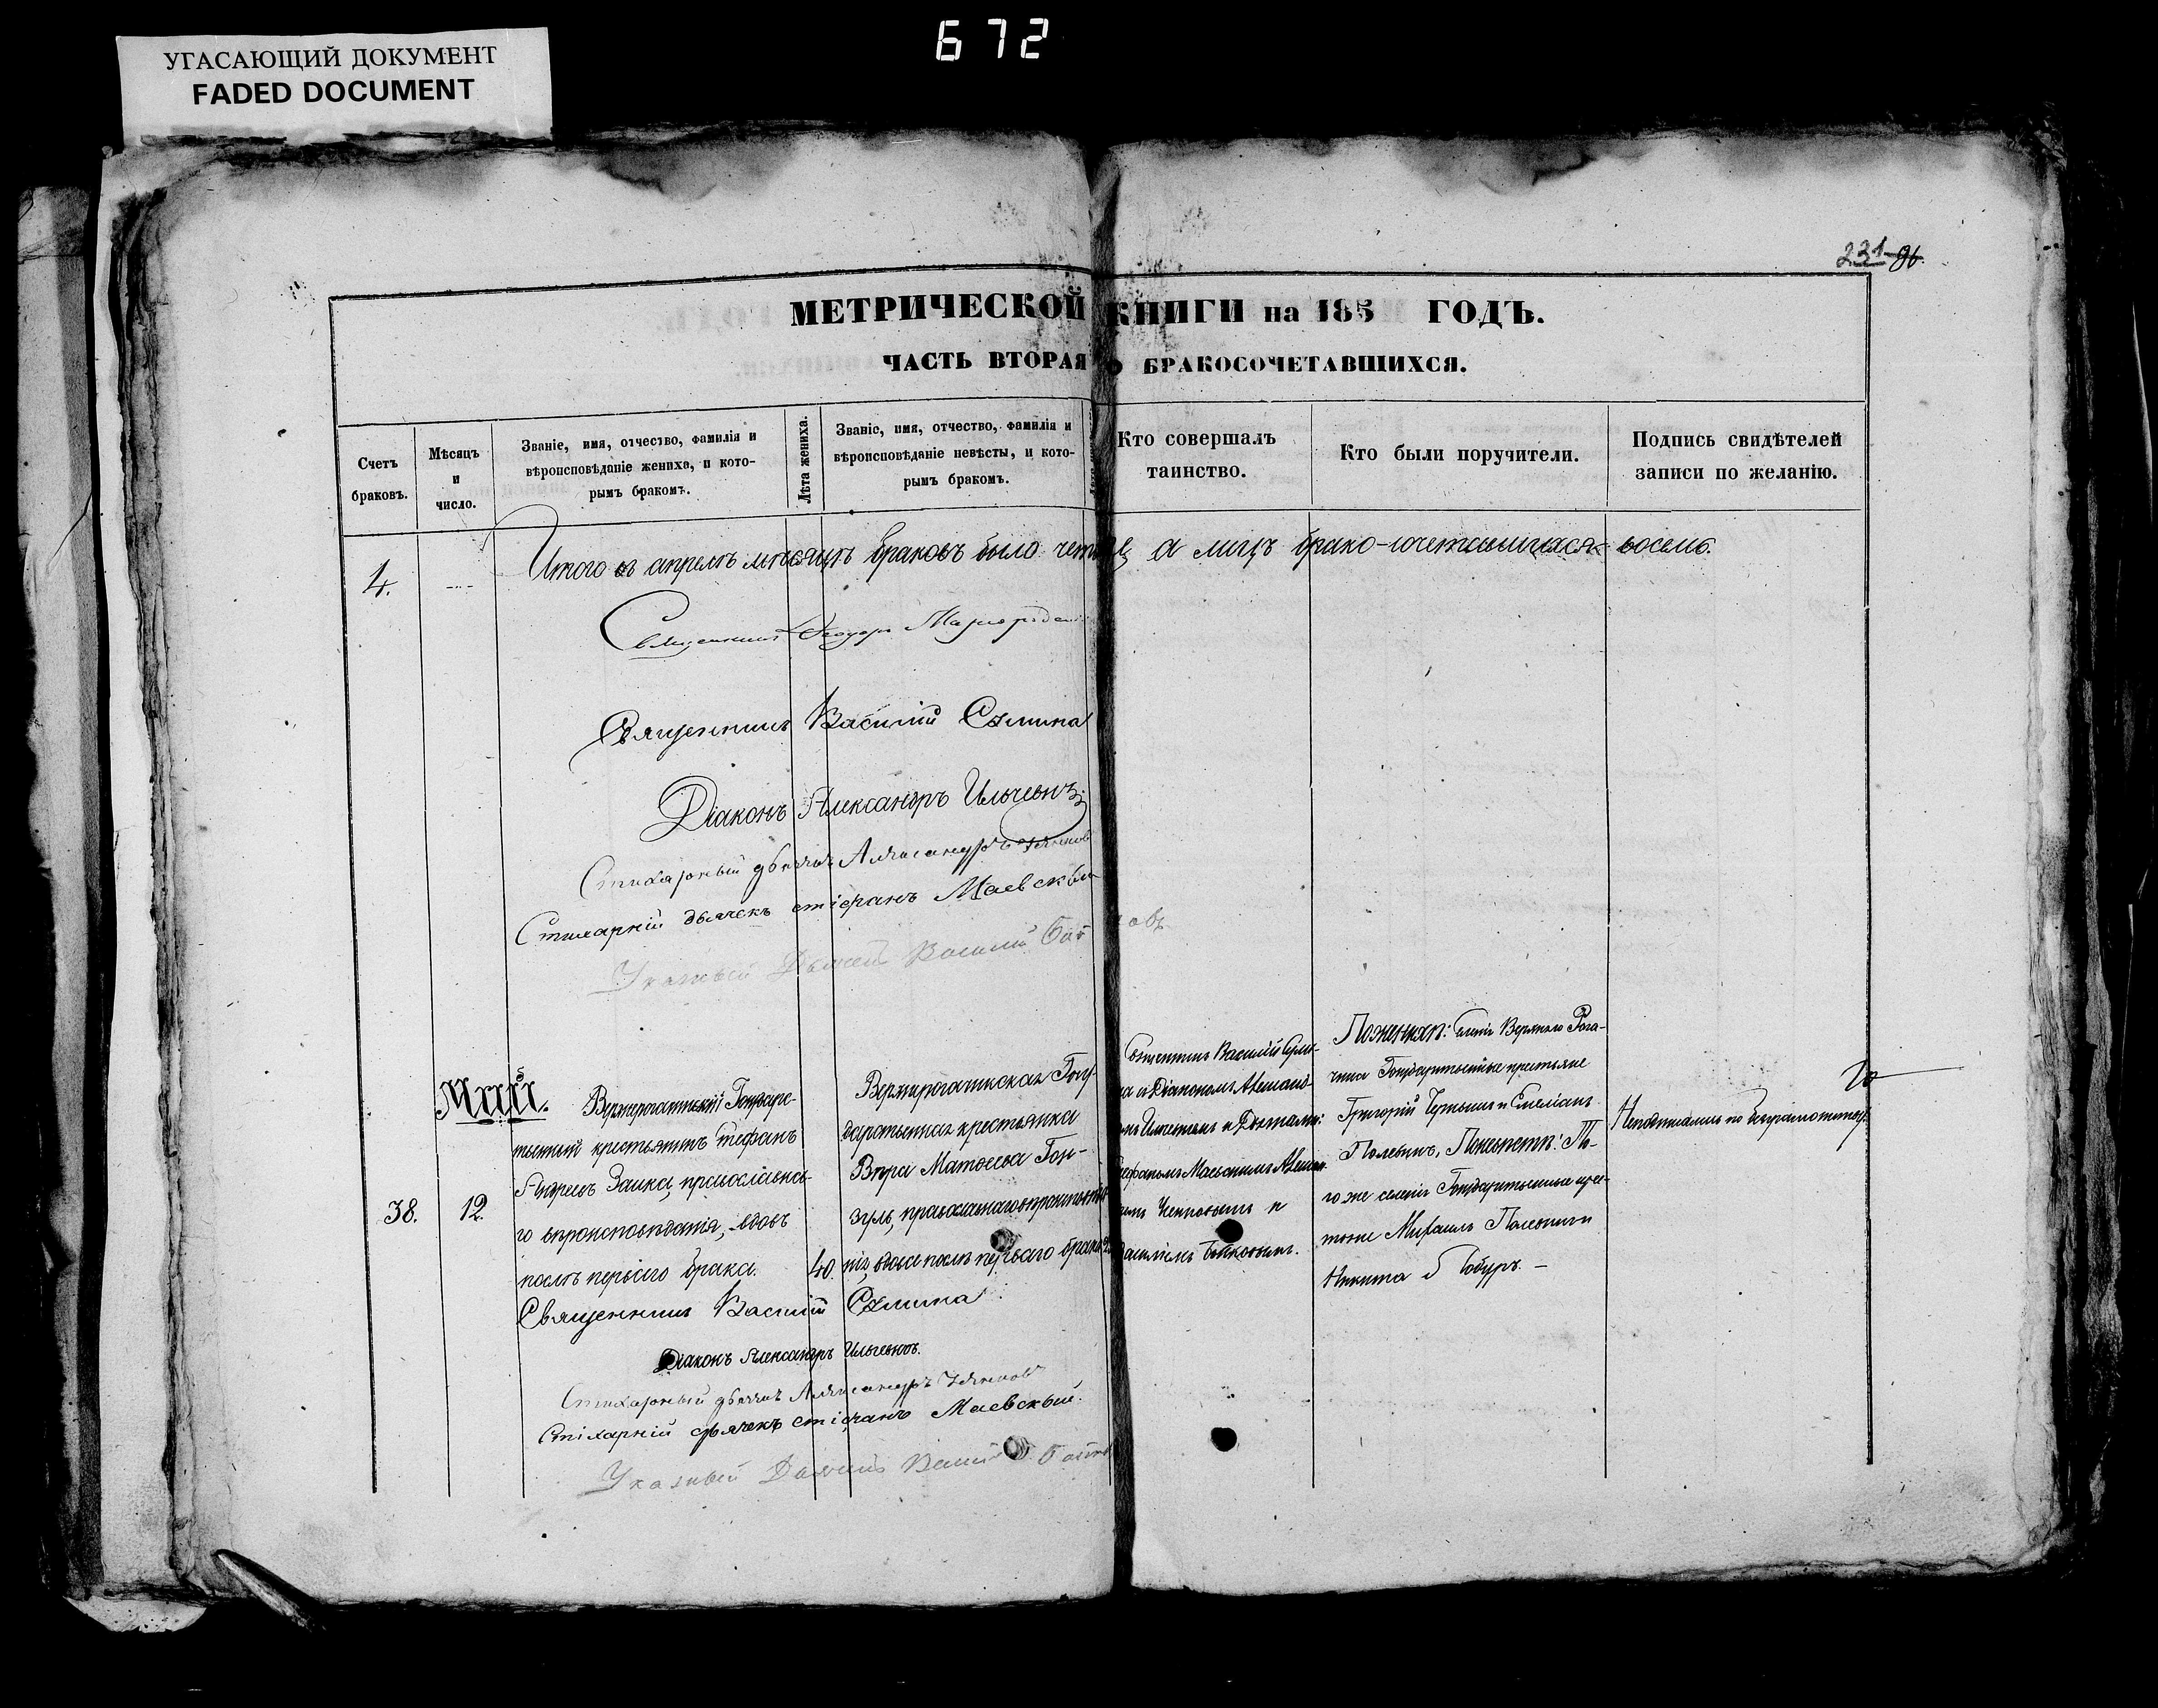 672
УГАСАЮЩИЙ ДОКУМЕНТ
FADED DOCUMENT
231 96.
МЕТРИЧЕСКОЙ КНИГИ на 185 ГОДЪ.
ЧАСТЬ ВТОРАЯ О БРАКОСОЧЕТАВШИХСЯ.
Счетъ
браковъ.
Мѣсяцъ
и
число.
Званіе, имя, отчество, фамилія и
вѣроисповѣданіе жениха, и кото-
рымъ бракомъ.
Лѣта жениха.
Званіе, имя, отчество, фамилія и
вѣроисповѣданіе невѣсты, и кото-
рымъ бракомъ.
Кто совершалъ
таинство.
Кто были поручители.
Подпись свидѣтелей
записи по желанію.
4.
Итого въ апрелѣ мѣсяцѣ браковъ было а лицъ брако-сочетавшихся восемь.
Священникъ Ѳеодоръ
Священникъ Василій Сялина
Діаконъ Александръ Ильчевъ
Стихарный дьячокъ Александръ
Стихарній дьячекъ стіфанъ Маевскій
Указный Дьячекъ Василій
Маій.
38.
12.
Верхнерогачикскій Государс-
твенный крестьянинъ Стефанъ
Андреевъ Заика, православна-
го вѣроисповѣданія, вдовъ
послѣ перваго брака.
40.
Верхнерогачикская Госу-
дарственная крестьянка
Вѣра Матвеева Гон-
зуль, православнаго вѣроисповѣда-
нія, вдова послѣ перваго брака
Священникъ Василій Сели-
на съ Діакономъ Александ-
Стефаномъ Маевскимъ
и
Василіемъ Бойковымъ.
По женихѣ: селенія Верхняго Рога-
чика Государственные крестьяне
Григорій и Емеліанъ
По невѣстѣ: То-
го же селенія Государственные крес-
тьяне Михаилъ и
Никита
Неподписались по безграмотству.
Священникъ Василій Сялина
Діаконъ Александръ Ильчевъ.
Стихарный дьячокъ Александръ
Стіхарній дьячекъ стіфанъ Маевскый.
Указный Дьячекъ Василій